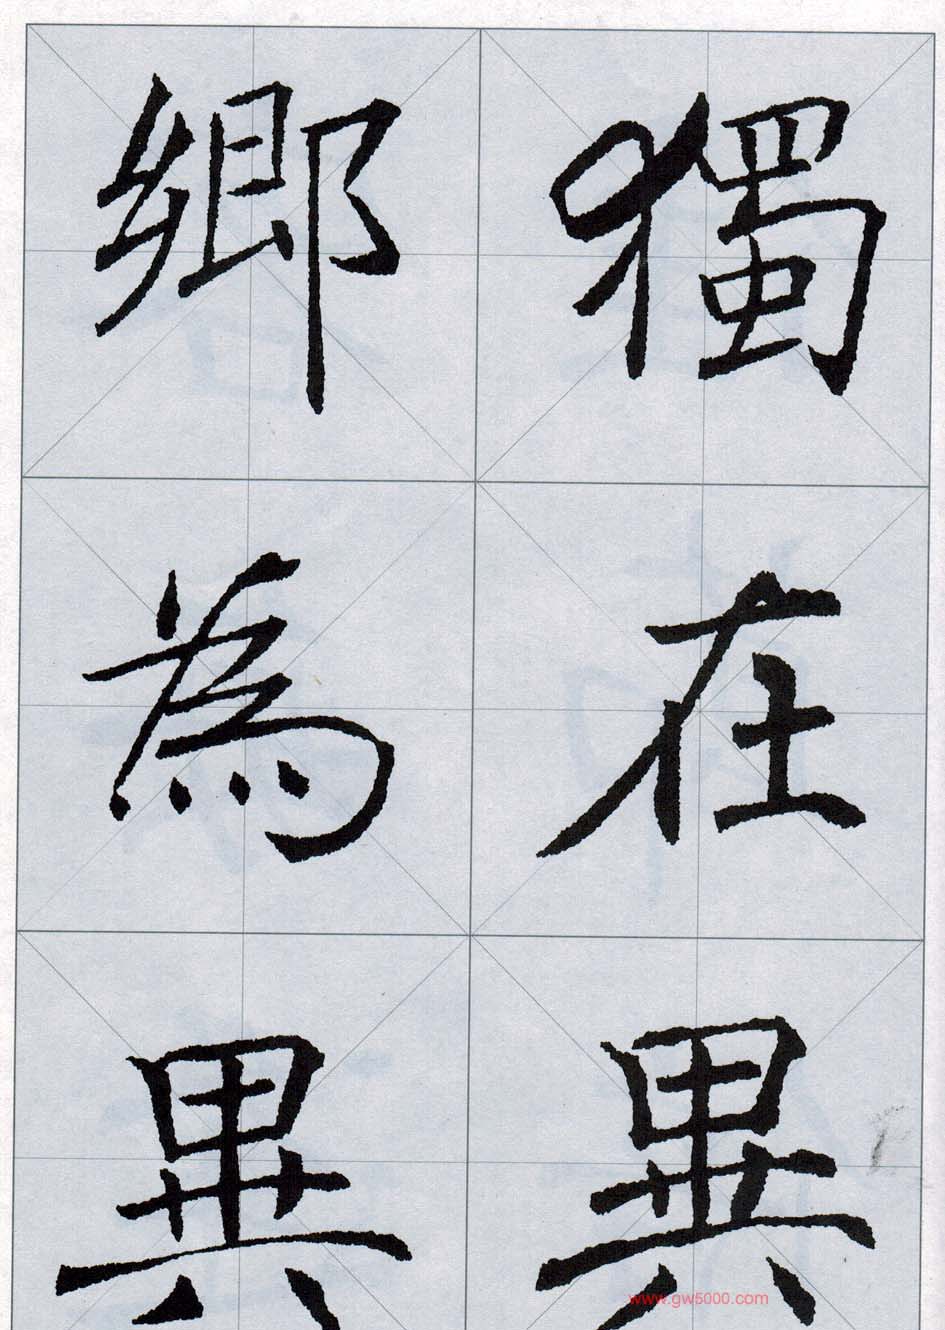 獨在異
鄉為異
www.gw5000.com